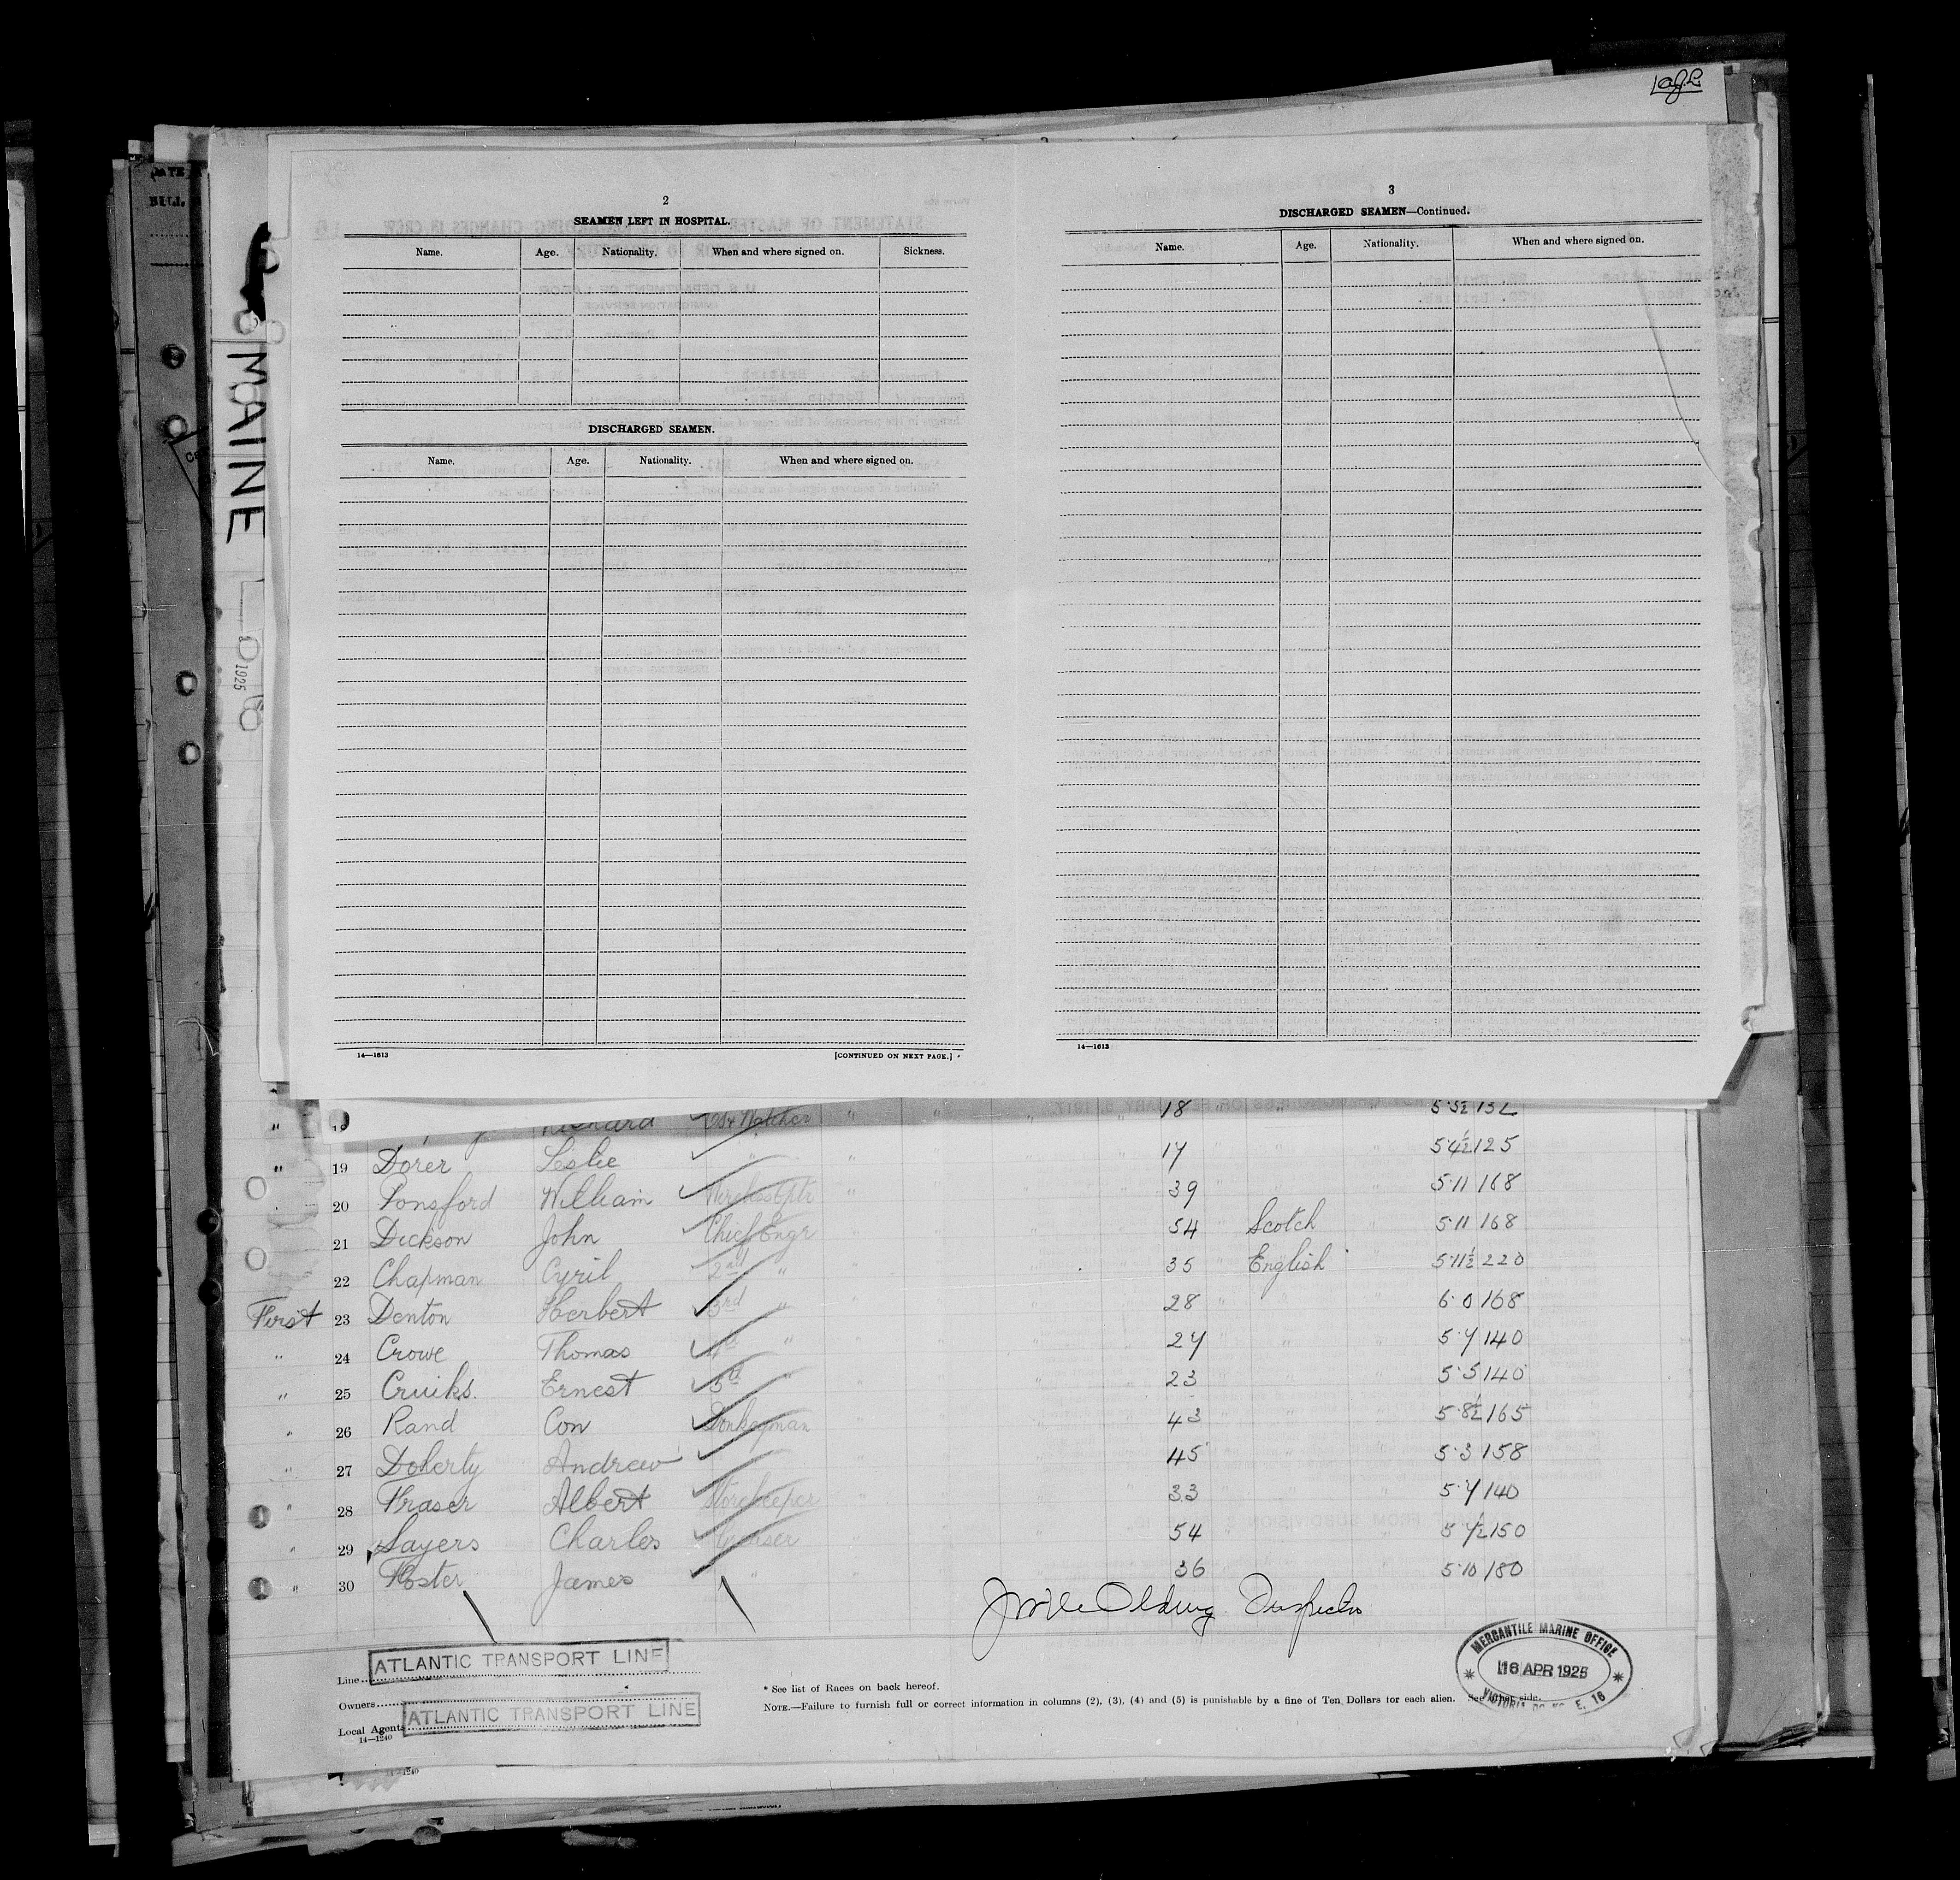 1 of 2
DATE
BILL
MAINE
1925
2
SEAMEN LEFT IN HOSPITAL.
Name. Age. Nationality. When and where signed on. Sickness.
DISCHARGED SEAMEN.
Name. Age. Nationality. When and where signed on.
14—1613 [CONTINUED ON NEXT PAGE.]
3
DISCHARGED SEAMEN—Continued.
Name. Age. Nationality. When and where signed on.
14—1613
" Richard " " " 18 " " " 5·5½ 132
" 19 Dorer Leslie " " " " 17 " " " 5·4½ 125
20 Ponsford William " " " 39 " " " 5·11 168
21 Dickson John Chief Engr " " " 54 " Scotch " 5·11 168
22 Chapman Cyril 2nd " " " " 35 " English " 5·11½ 220
First 23 Denton Herbert 3rd " " " " 28 " " " 6·0 168
" 24 Crowe Thomas " " " " 27 " " " 5·7 140
" 25 Cruiks. Ernest 5th " " " " 23 " " " 5·5 140
" 26 Rand Con Donkeyman " " " 43 " " " 5·8½ 165
" 27 Doherty Andrew " " " 45 " " " 5·3 158
" 28 Fraser Albert Storekeeper " " " 33 " " " 5·7 140
" 29 Sayers Charles Greaser " " " 54 " " " 5 7½ 150
" 30 Foster James " " " " 36 " " " 5·10 180
Olding Inspector
Line ATLANTIC TRANSPORT LINE
Owners
Local Agents ATLANTIC TRANSPORT LINE
14—1240
* See list of Races on back hereof.
NOTE.—Failure to furnish full or correct information in columns (2), (3), (4) and (5) is punishable by a fine of Ten Dollars for each alien. See other side.
MERCANTILE MARINE OFFICE
16 APR 1925
VICTORIA E. 16
1240